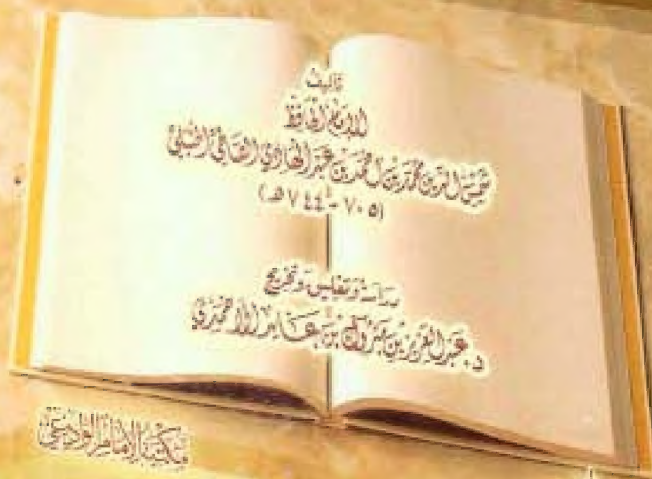 تأليف
الإمام الحافظ
شمس الدين محمد بن أحمد بن عبد الهادي الصالحي الحنبلي
(٧٠٥-٧٤٤هـ)
دراسة وتعليق وتخريج
د. عبد العزيز بن مبروك بن عايد الأحمدي
مكتبة الإمام الوادعي